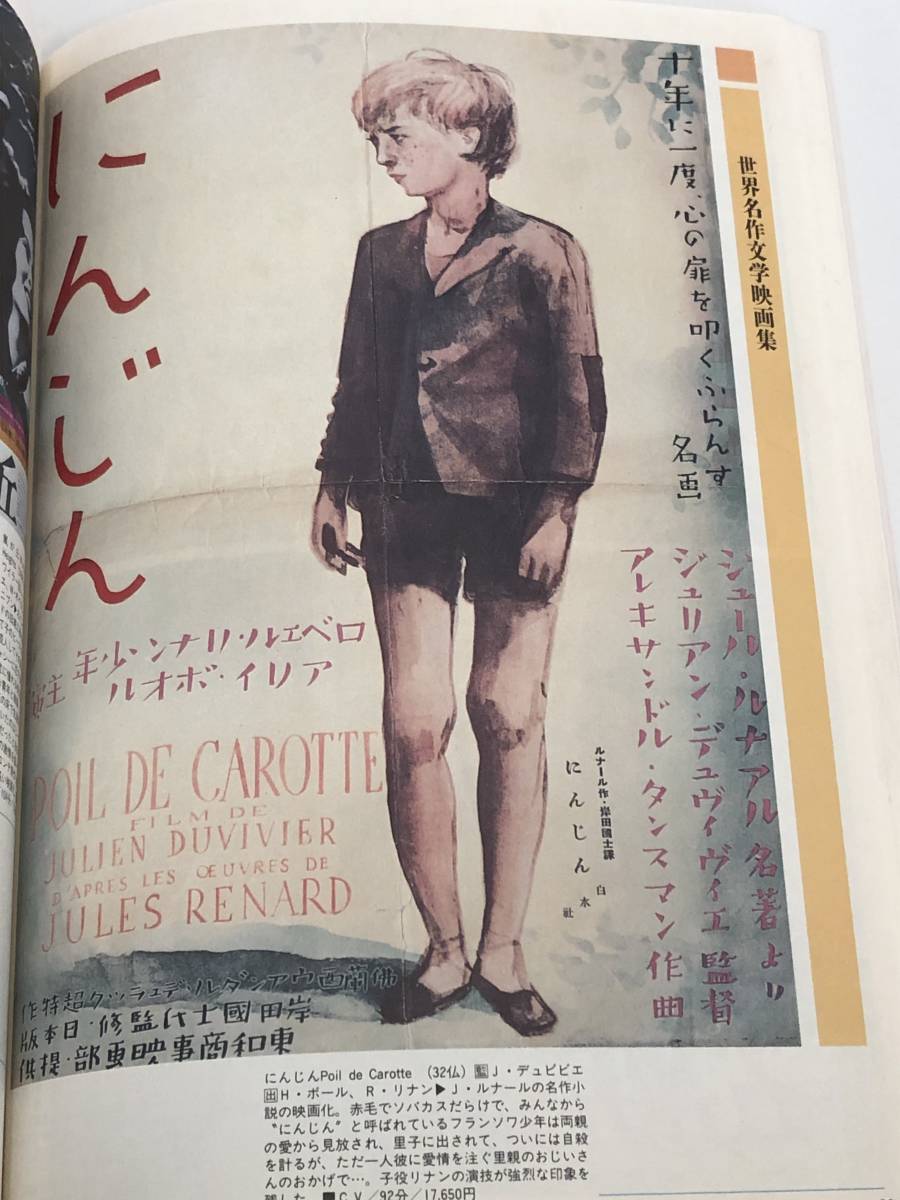 世界名作文学映画集
十年に一度、心の扉を叩くふらんす
名画
ジュール・ルナアル名著より
ジュリアン・デュヴィヴィエ監督
アレキサンドル・タンスマン作曲
にんじん
ロベエル・リナン少年
アリイ・ボオル
主演
POIL DE CAROTTE
FILM DE
JULIEN DUVIVIER
D'APRES LES ŒUVRES DE
JULES RENARD
ルナール作・岸田國士譯
にんじん
白水社
佛蘭西ヴァンダル・デュラック超特作
岸田國士氏監修・日本版
東和商事映画部・提供
にんじんPoil de Carotte （32仏）監J・デュビビエ
出H・ボール、R・リナン▶J・ルナールの名作小
説の映画化。赤毛でソバカスだらけで、みんなから
〝にんじん〟と呼ばれているフランソワ少年は両親
の愛から見放され、里子に出されて、ついには自殺
を計るが、ただ一人彼に愛情を注ぐ里親のおじいさ
んのおかげで…。子役リナンの演技が強烈な印象を
残した。■CV／92分／17,650円
丘